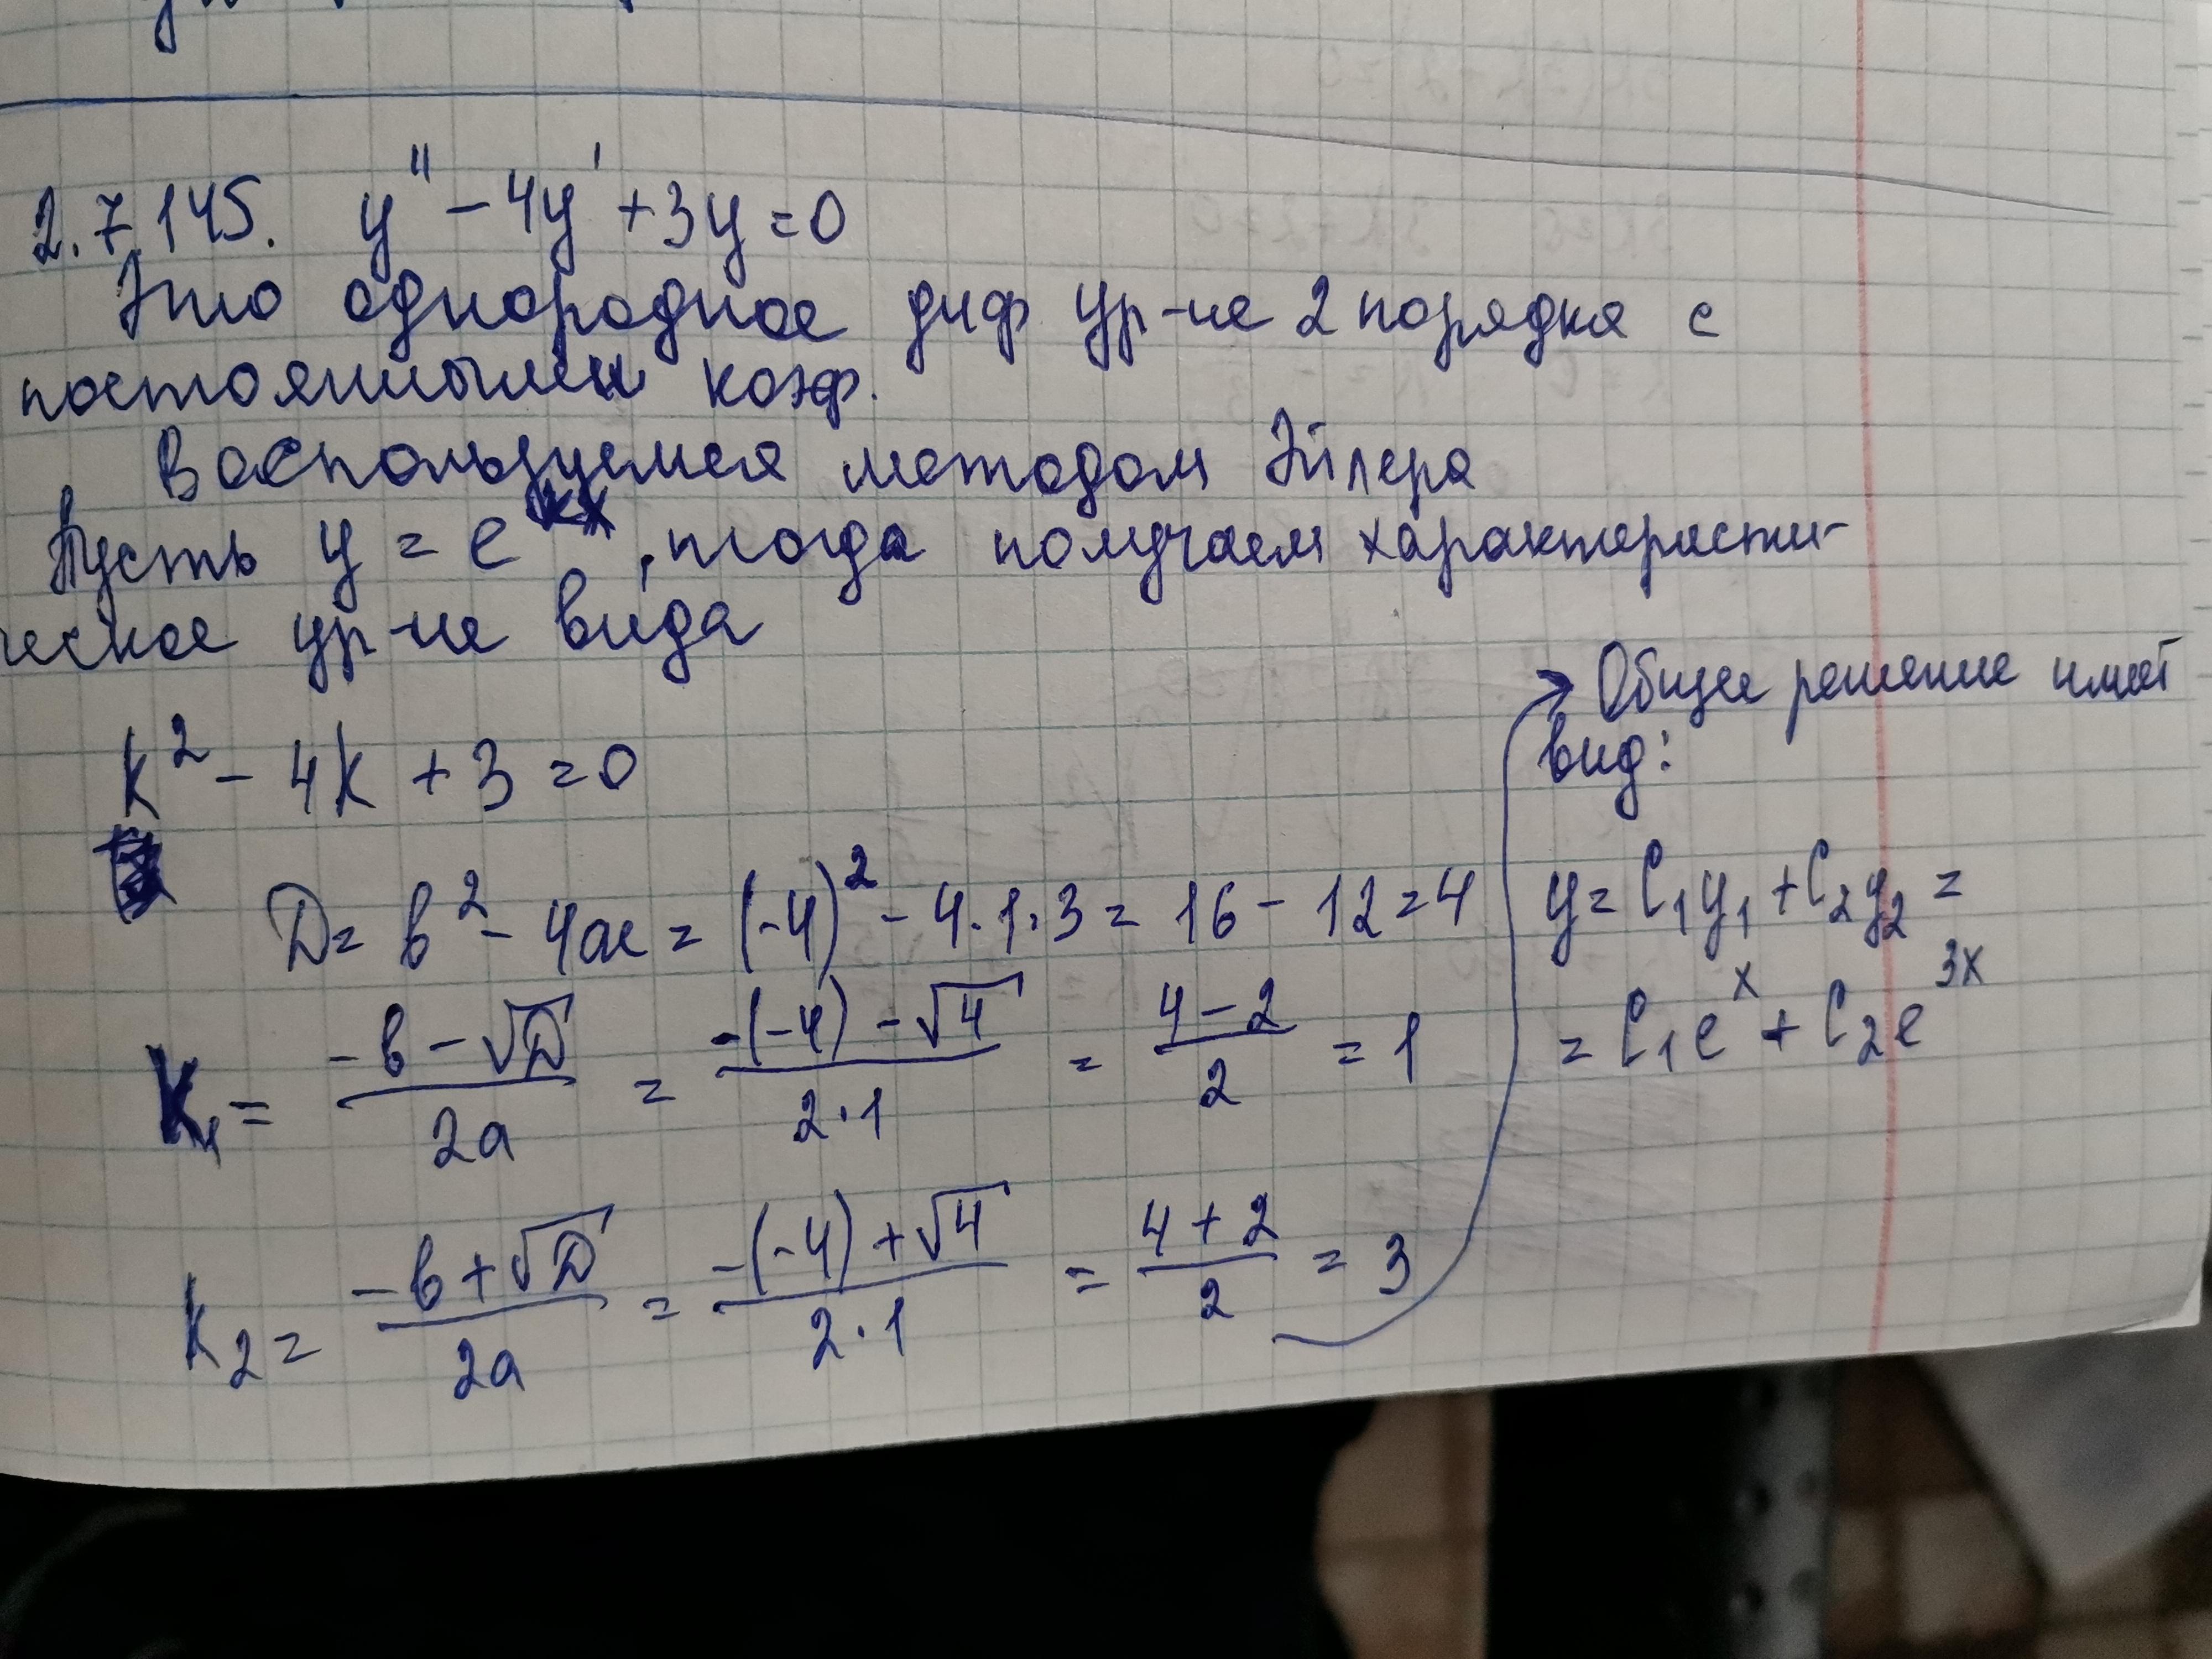 2.7.145. y'' - 4y' + 3y = 0
Это однородное диф ур-ие 2 порядка с
постоянными коэф.
Воспользуемся методом Эйлера
Пусть y = e^{kx}, тогда получаем характеристи-
ческое ур-ие вида
k² - 4k + 3 = 0
D = b² - 4ac = (-4)² - 4·1·3 = 16 - 12 = 4
k₁ = (-b - √D)/(2a) = (-(-4) - √4)/(2·1) = (4 - 2)/2 = 1
k₂ = (-b + √D)/(2a) = (-(-4) + √4)/(2·1) = (4 + 2)/2 = 3
→ Общее решение имеет
вид:
y = C₁y₁ + C₂y₂ =
= C₁e^x + C₂e^{3x}